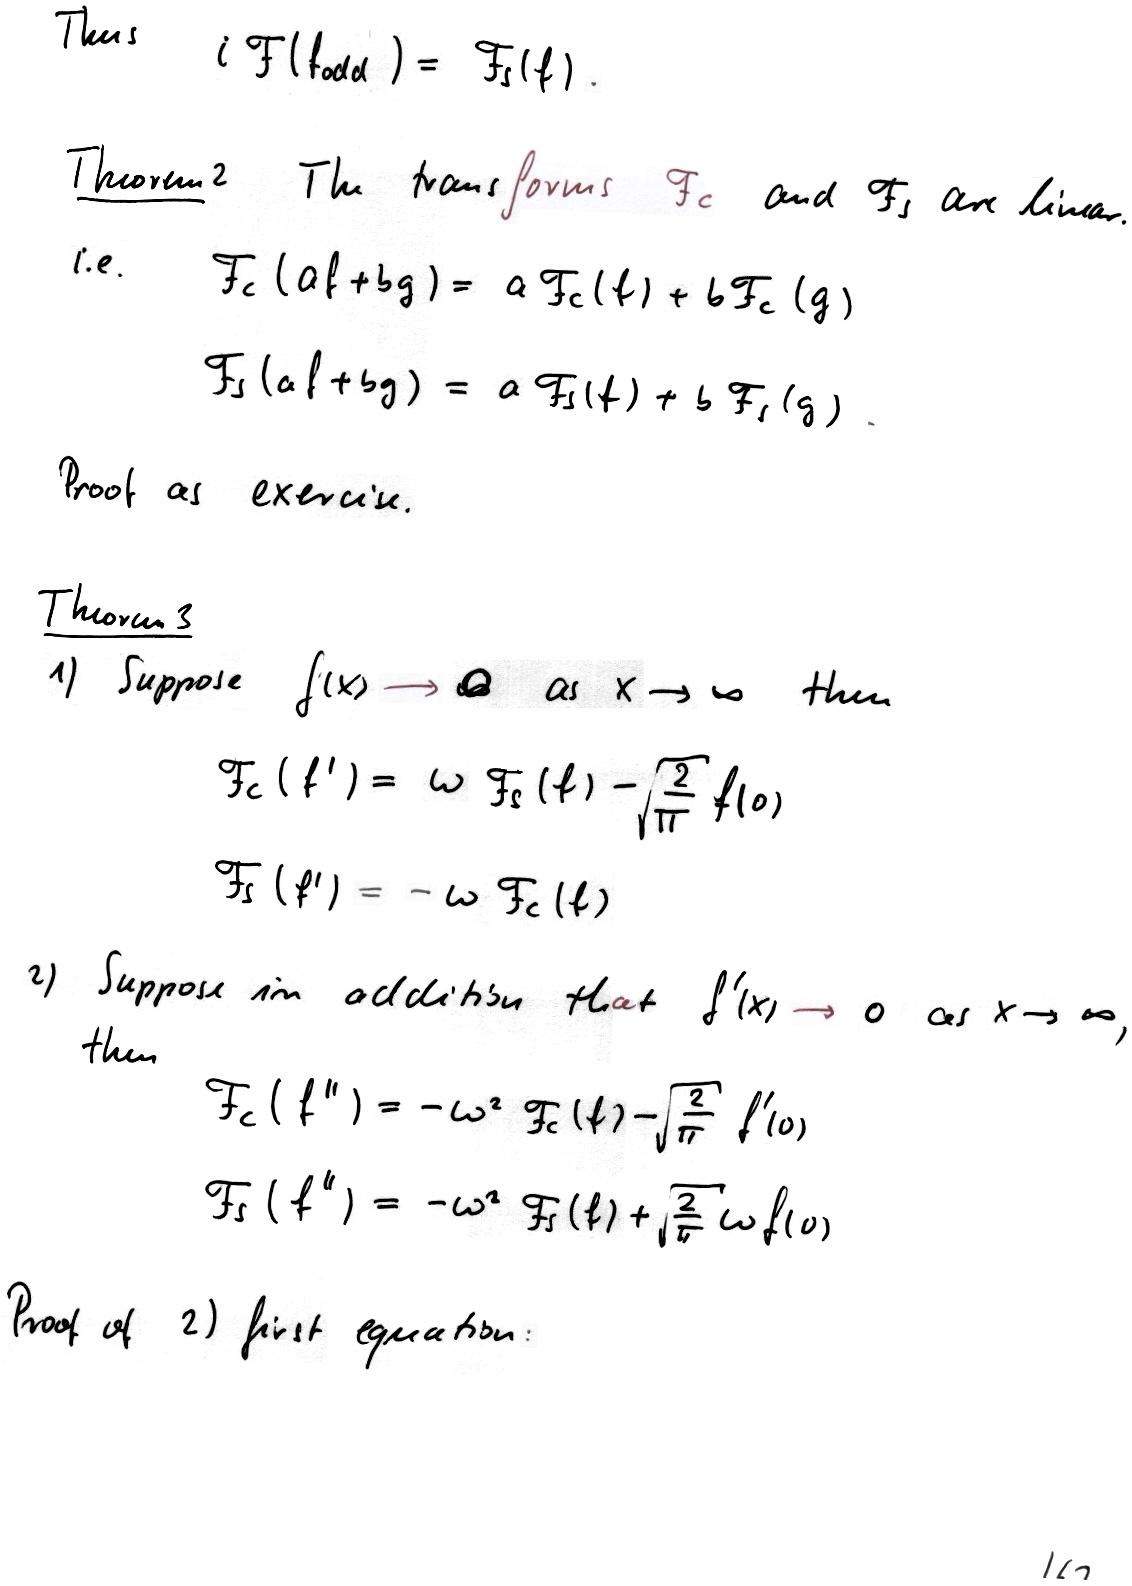 Thus i 𝓕(f_odd) = 𝓕_s(f).
Theorem 2 The transforms 𝓕_c and 𝓕_s are linear.
i.e. 𝓕_c(af+bg) = a 𝓕_c(f) + b 𝓕_c(g)
𝓕_s(af+bg) = a 𝓕_s(f) + b 𝓕_s(g).
Proof as exercise.
Theorem 3
1) Suppose f(x) → 0 as x → ∞ then
𝓕_c(f') = ω 𝓕_s(f) - √(2/π) f(0)
𝓕_s(f') = -ω 𝓕_c(f)
2) Suppose in addition that f'(x) → 0 as x → ∞,
then
𝓕_c(f'') = -ω² 𝓕_c(f) - √(2/π) f'(0)
𝓕_s(f'') = -ω² 𝓕_s(f) + √(2/π) ω f(0)
Proof of 2) first equation: